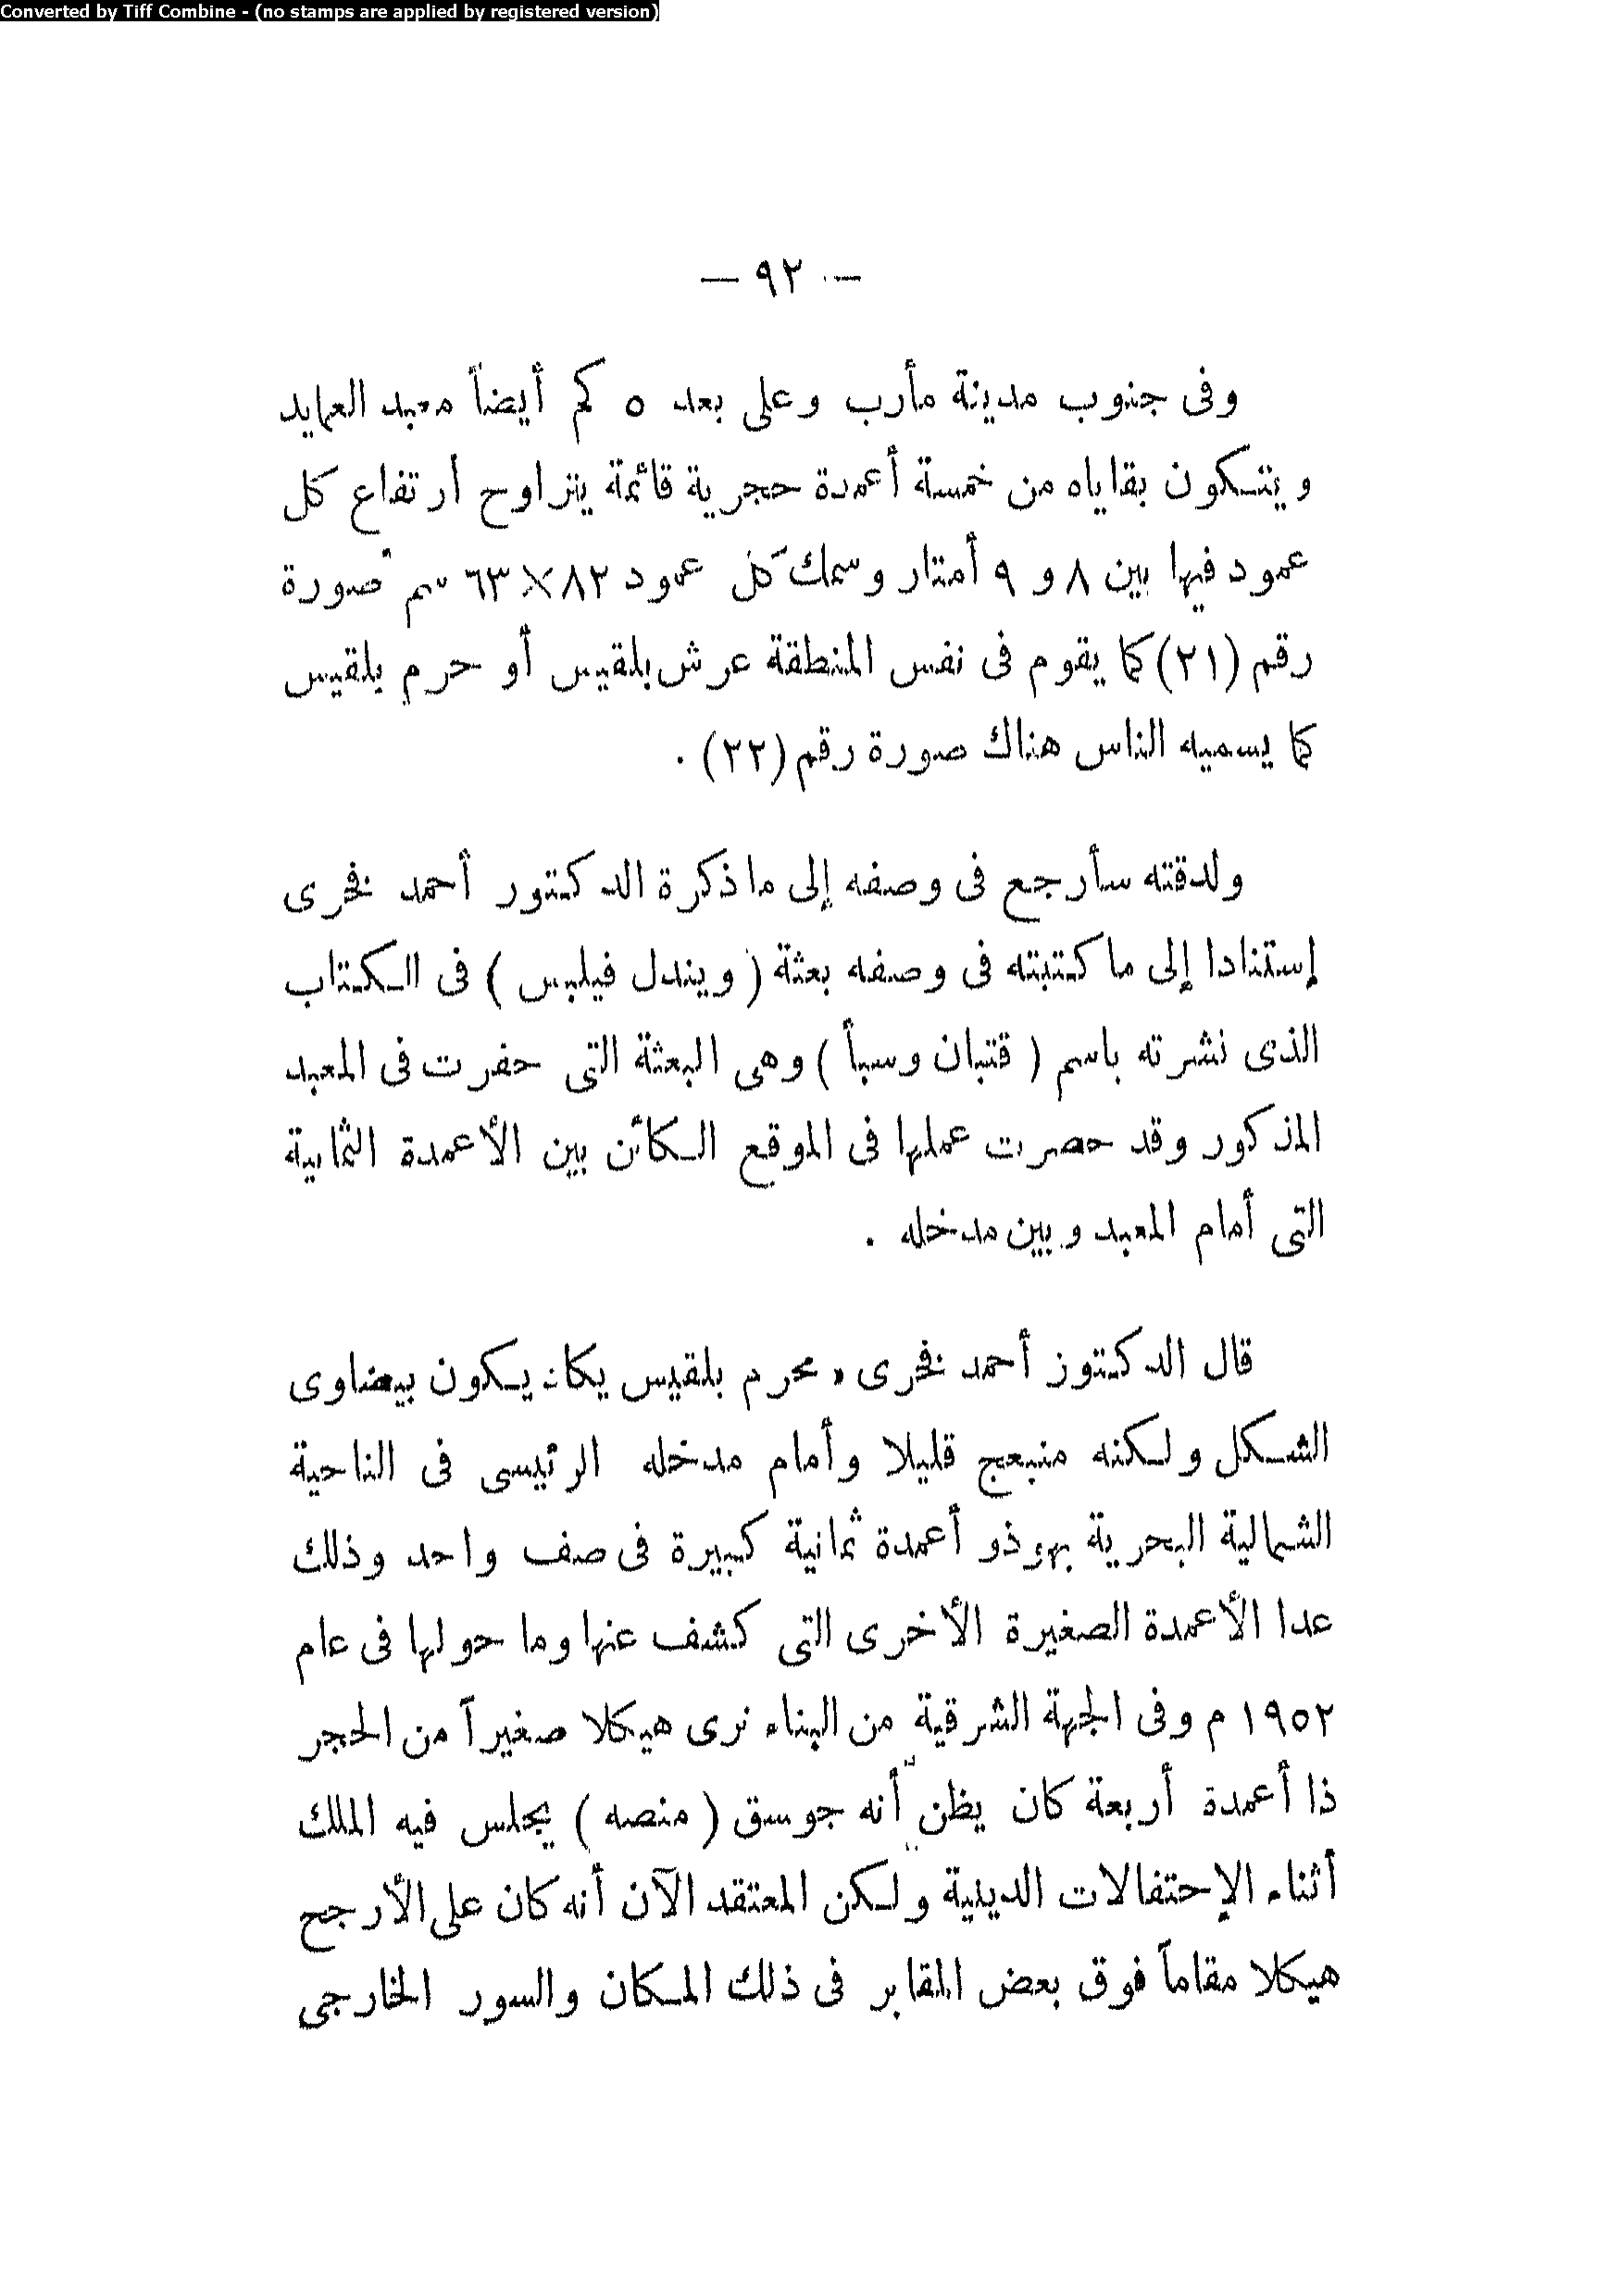 Converted by Tiff Combine - (no stamps are applied by registered version)
— ٩٢ —
وفى جنوب مدينة مأرب وعلى بعد ٥ كم أيضاً معبد العمايد
ويتكون بقاياه من خمسة أعمدة حجرية قائمة يتراوح أرتفاع كل
عمود فيها بين ٨ و ٩ أمتار وسمك كل عمود ٨٢×٦٣ سم صورة
رقم (٢١) كما يقوم فى نفس المنطقة عرش بلقيس أو حرم بلقيس
كما يسميه الناس هناك صورة رقم (٢٢) .
ولدقته سأرجع فى وصفه إلى ما ذكرة الدكتور أحمد فخرى
إستنادا إلى ما كتبته فى وصفه بعثة ( ويندل فيلبس ) فى الكتاب
الذى نشرته باسم ( قتبان وسبأ ) وهى البعثة التى حفرت فى المعبد
المذكور وقد حصرت عملها فى الموقع الكائن بين الأعمدة الثمانية
التى أمام المعبد وبين مدخله .
قال الدكتوز أحمد فخرى « محرم بلقيس يكاد يكون بيضاوى
الشكل ولكنه منبعج قليلا وأمام مدخله الرئيسى فى الناحية
الشمالية البحرية بهو ذو أعمدة ثمانية كبيرة فى صف واحد وذلك
عدا الأعمدة الصغيرة الأخرى التى كشف عنها وما حولها فى عام
١٩٥٢ م وفى الجهة الشرقية من البناء نرى هيكلا صغيراً من الحجر
ذا أعمدة أربعة كان يظن أنه جوسق ( منصه ) يجلس فيه الملك
أثناء الإحتفالات الدينية ولكن المعتقد الآن أنه كان على الأرجح
هيكلا مقاماً فوق بعض المقابر فى ذلك المكان والسور الخارجى